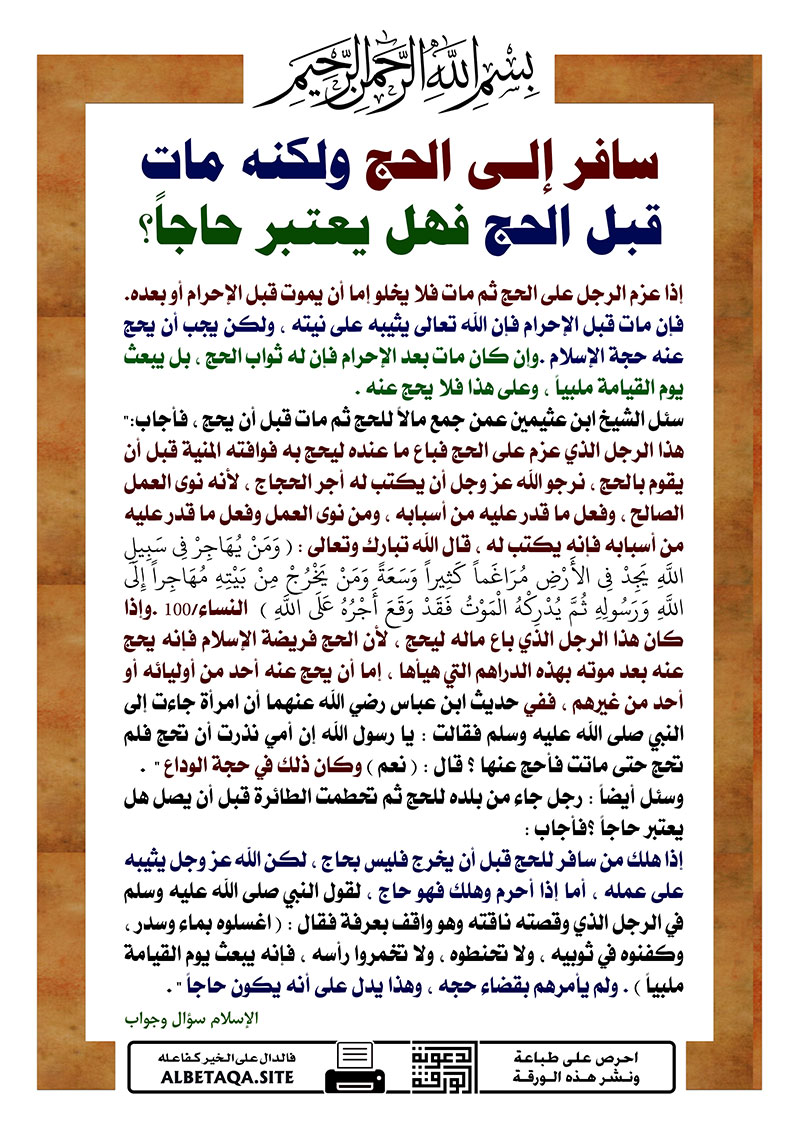 بسم الله الرحمن الرحيم
سافر إلى الحج ولكنه مات
قبل الحج فهل يعتبر حاجاً؟
إذا عزم الرجل على الحج ثم مات فلا يخلو إما أن يموت قبل الإحرام أو بعده.
فإن مات قبل الإحرام فإن الله تعالى يثيبه على نيته ، ولكن يجب أن يحج
عنه حجة الإسلام .وإن كان مات بعد الإحرام فإن له ثواب الحج ، بل يبعث
يوم القيامة ملبياً ، وعلى هذا فلا يحج عنه .
سئل الشيخ ابن عثيمين عمن جمع مالاً للحج ثم مات قبل أن يحج ، فأجاب:"
هذا الرجل الذي عزم على الحج فباع ما عنده ليحج به فوافته المنية قبل أن
يقوم بالحج ، نرجو الله عز وجل أن يكتب له أجر الحجاج ، لأنه نوى العمل
الصالح ، وفعل ما قدر عليه من أسبابه ، ومن نوى العمل وفعل ما قدر عليه
من أسبابه فإنه يكتب له ، قال الله تبارك وتعالى : ( وَمَنْ يُهَاجِرْ فِي سَبِيلِ
اللَّهِ يَجِدْ فِي الأَرْضِ مُرَاغَماً كَثِيراً وَسَعَةً وَمَنْ يَخْرُجْ مِنْ بَيْتِهِ مُهَاجِراً إِلَى
اللَّهِ وَرَسُولِهِ ثُمَّ يُدْرِكْهُ الْمَوْتُ فَقَدْ وَقَعَ أَجْرُهُ عَلَى اللَّهِ ) النساء/100 .وإذا
كان هذا الرجل الذي باع ماله ليحج ، لأن الحج فريضة الإسلام فإنه يحج
عنه بعد موته بهذه الدراهم التي هيأها ، إما أن يحج عنه أحد من أوليائه أو
أحد من غيرهم ، ففي حديث ابن عباس رضي الله عنهما أن امرأة جاءت إلى
النبي صلى الله عليه وسلم فقالت : يا رسول الله إن أمي نذرت أن تحج فلم
تحج حتى ماتت فأحج عنها ؟ قال : ( نعم ) وكان ذلك في حجة الوداع " .
وسئل أيضاً : رجل جاء من بلده للحج ثم تحطمت الطائرة قبل أن يصل هل
يعتبر حاجاً ؟فأجاب :
إذا هلك من سافر للحج قبل أن يخرج فليس بحاج ، لكن الله عز وجل يثيبه
على عمله ، أما إذا أحرم وهلك فهو حاج ، لقول النبي صلى الله عليه وسلم
في الرجل الذي وقصته ناقته وهو واقف بعرفة فقال : ( اغسلوه بماء وسدر ،
وكفنوه في ثوبيه ، ولا تحنطوه ، ولا تخمروا رأسه ، فإنه يبعث يوم القيامة
ملبياً ) . ولم يأمرهم بقضاء حجه ، وهذا يدل على أنه يكون حاجاً " .
الإسلام سؤال وجواب
احرص على طباعة
ونشر هذه الورقة
الدعوية
الورقة
فالدال على الخير كفاعله
ALBETAQA.SITE